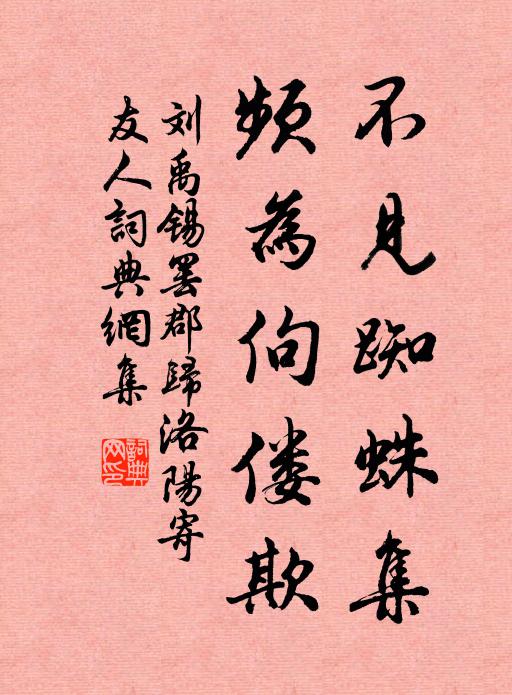 不見踟蛛集
頻為佝僂欺
刘禹锡罢郡歸洛陽寄
友人詞典網集
詞典
网印